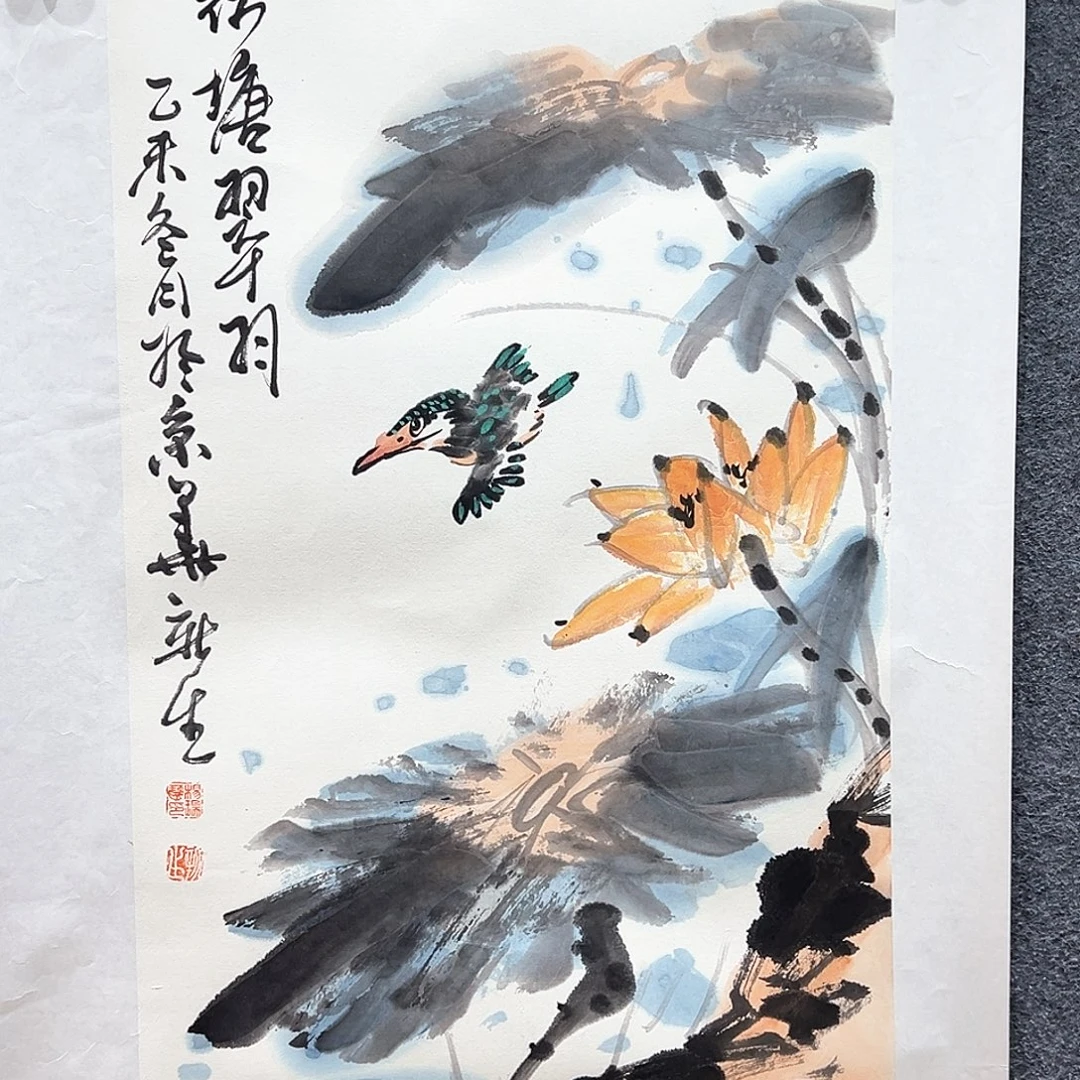 荷塘翠羽
乙未冬月於京華新生